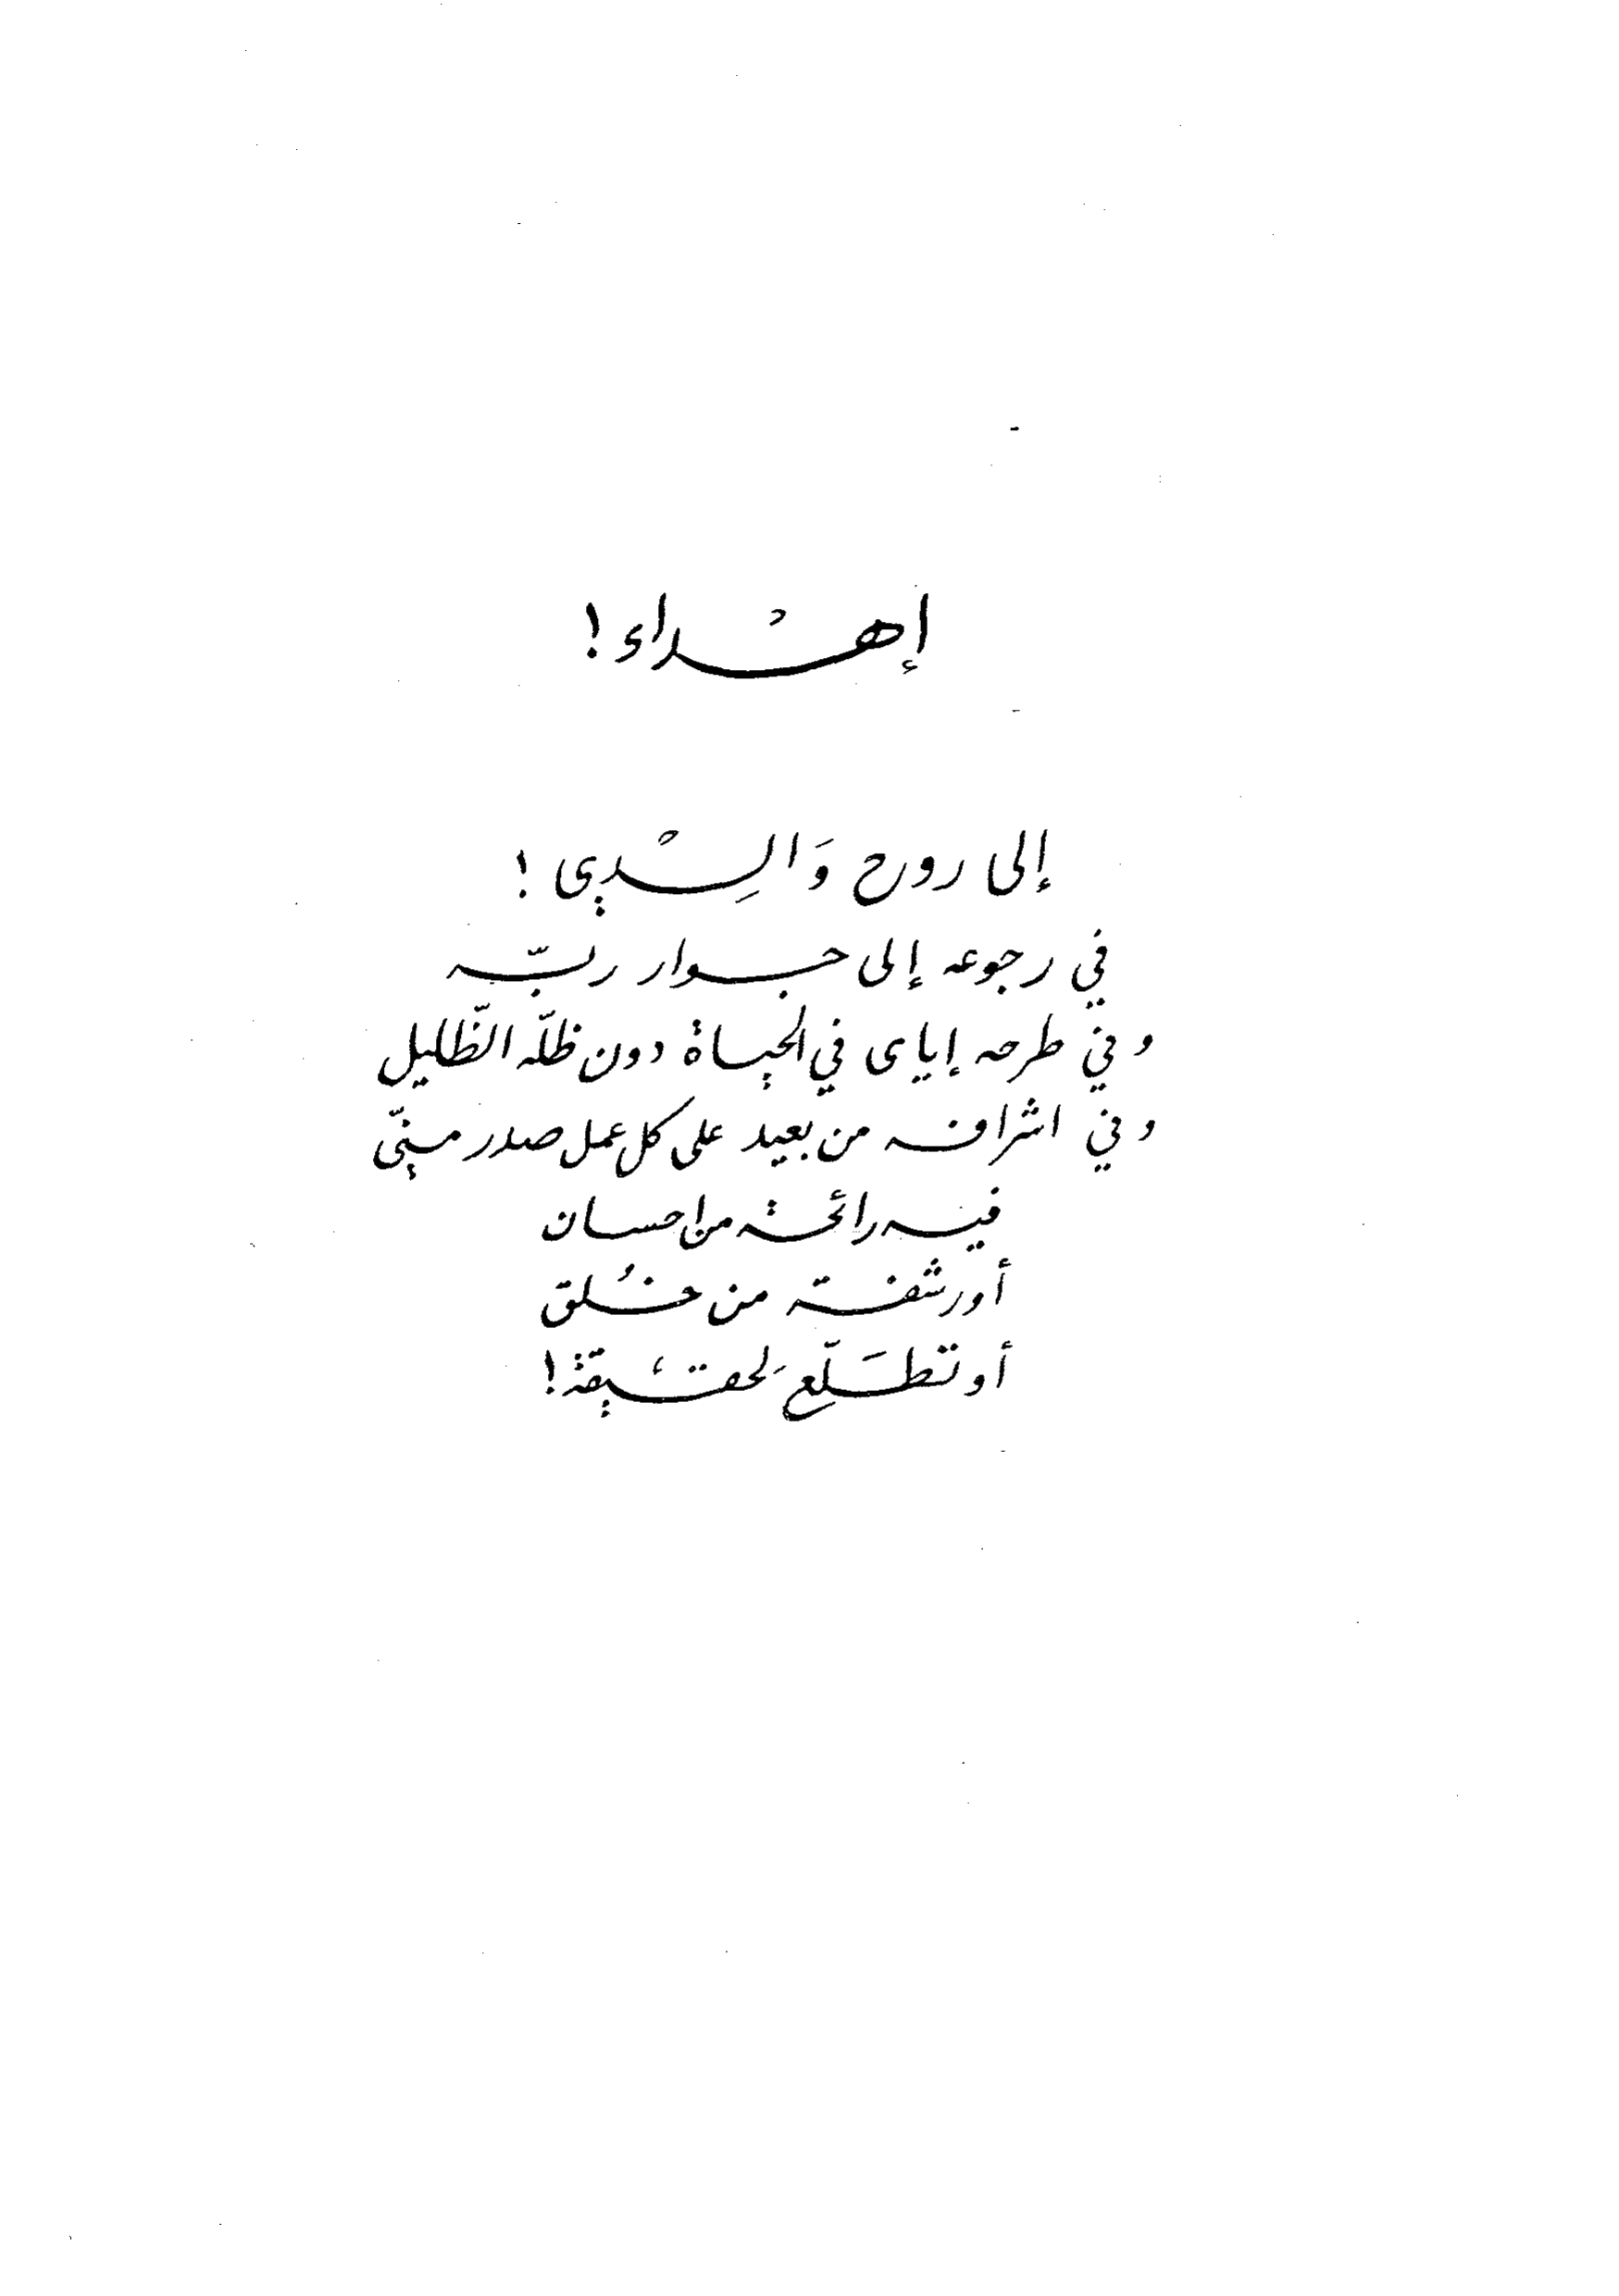 إهداء !
إلى روح وَالِدي !
في رجوعه إلى جوار ربّه
وفي طرحه إياى في الحياة دون ظلّه الظّليل
وفي اشرافه من بعيد على كل عمل صدر منيّ
فيه رائحة من احسان
أو رشفة من خُلق
أو تطَلّع لحقيقة !